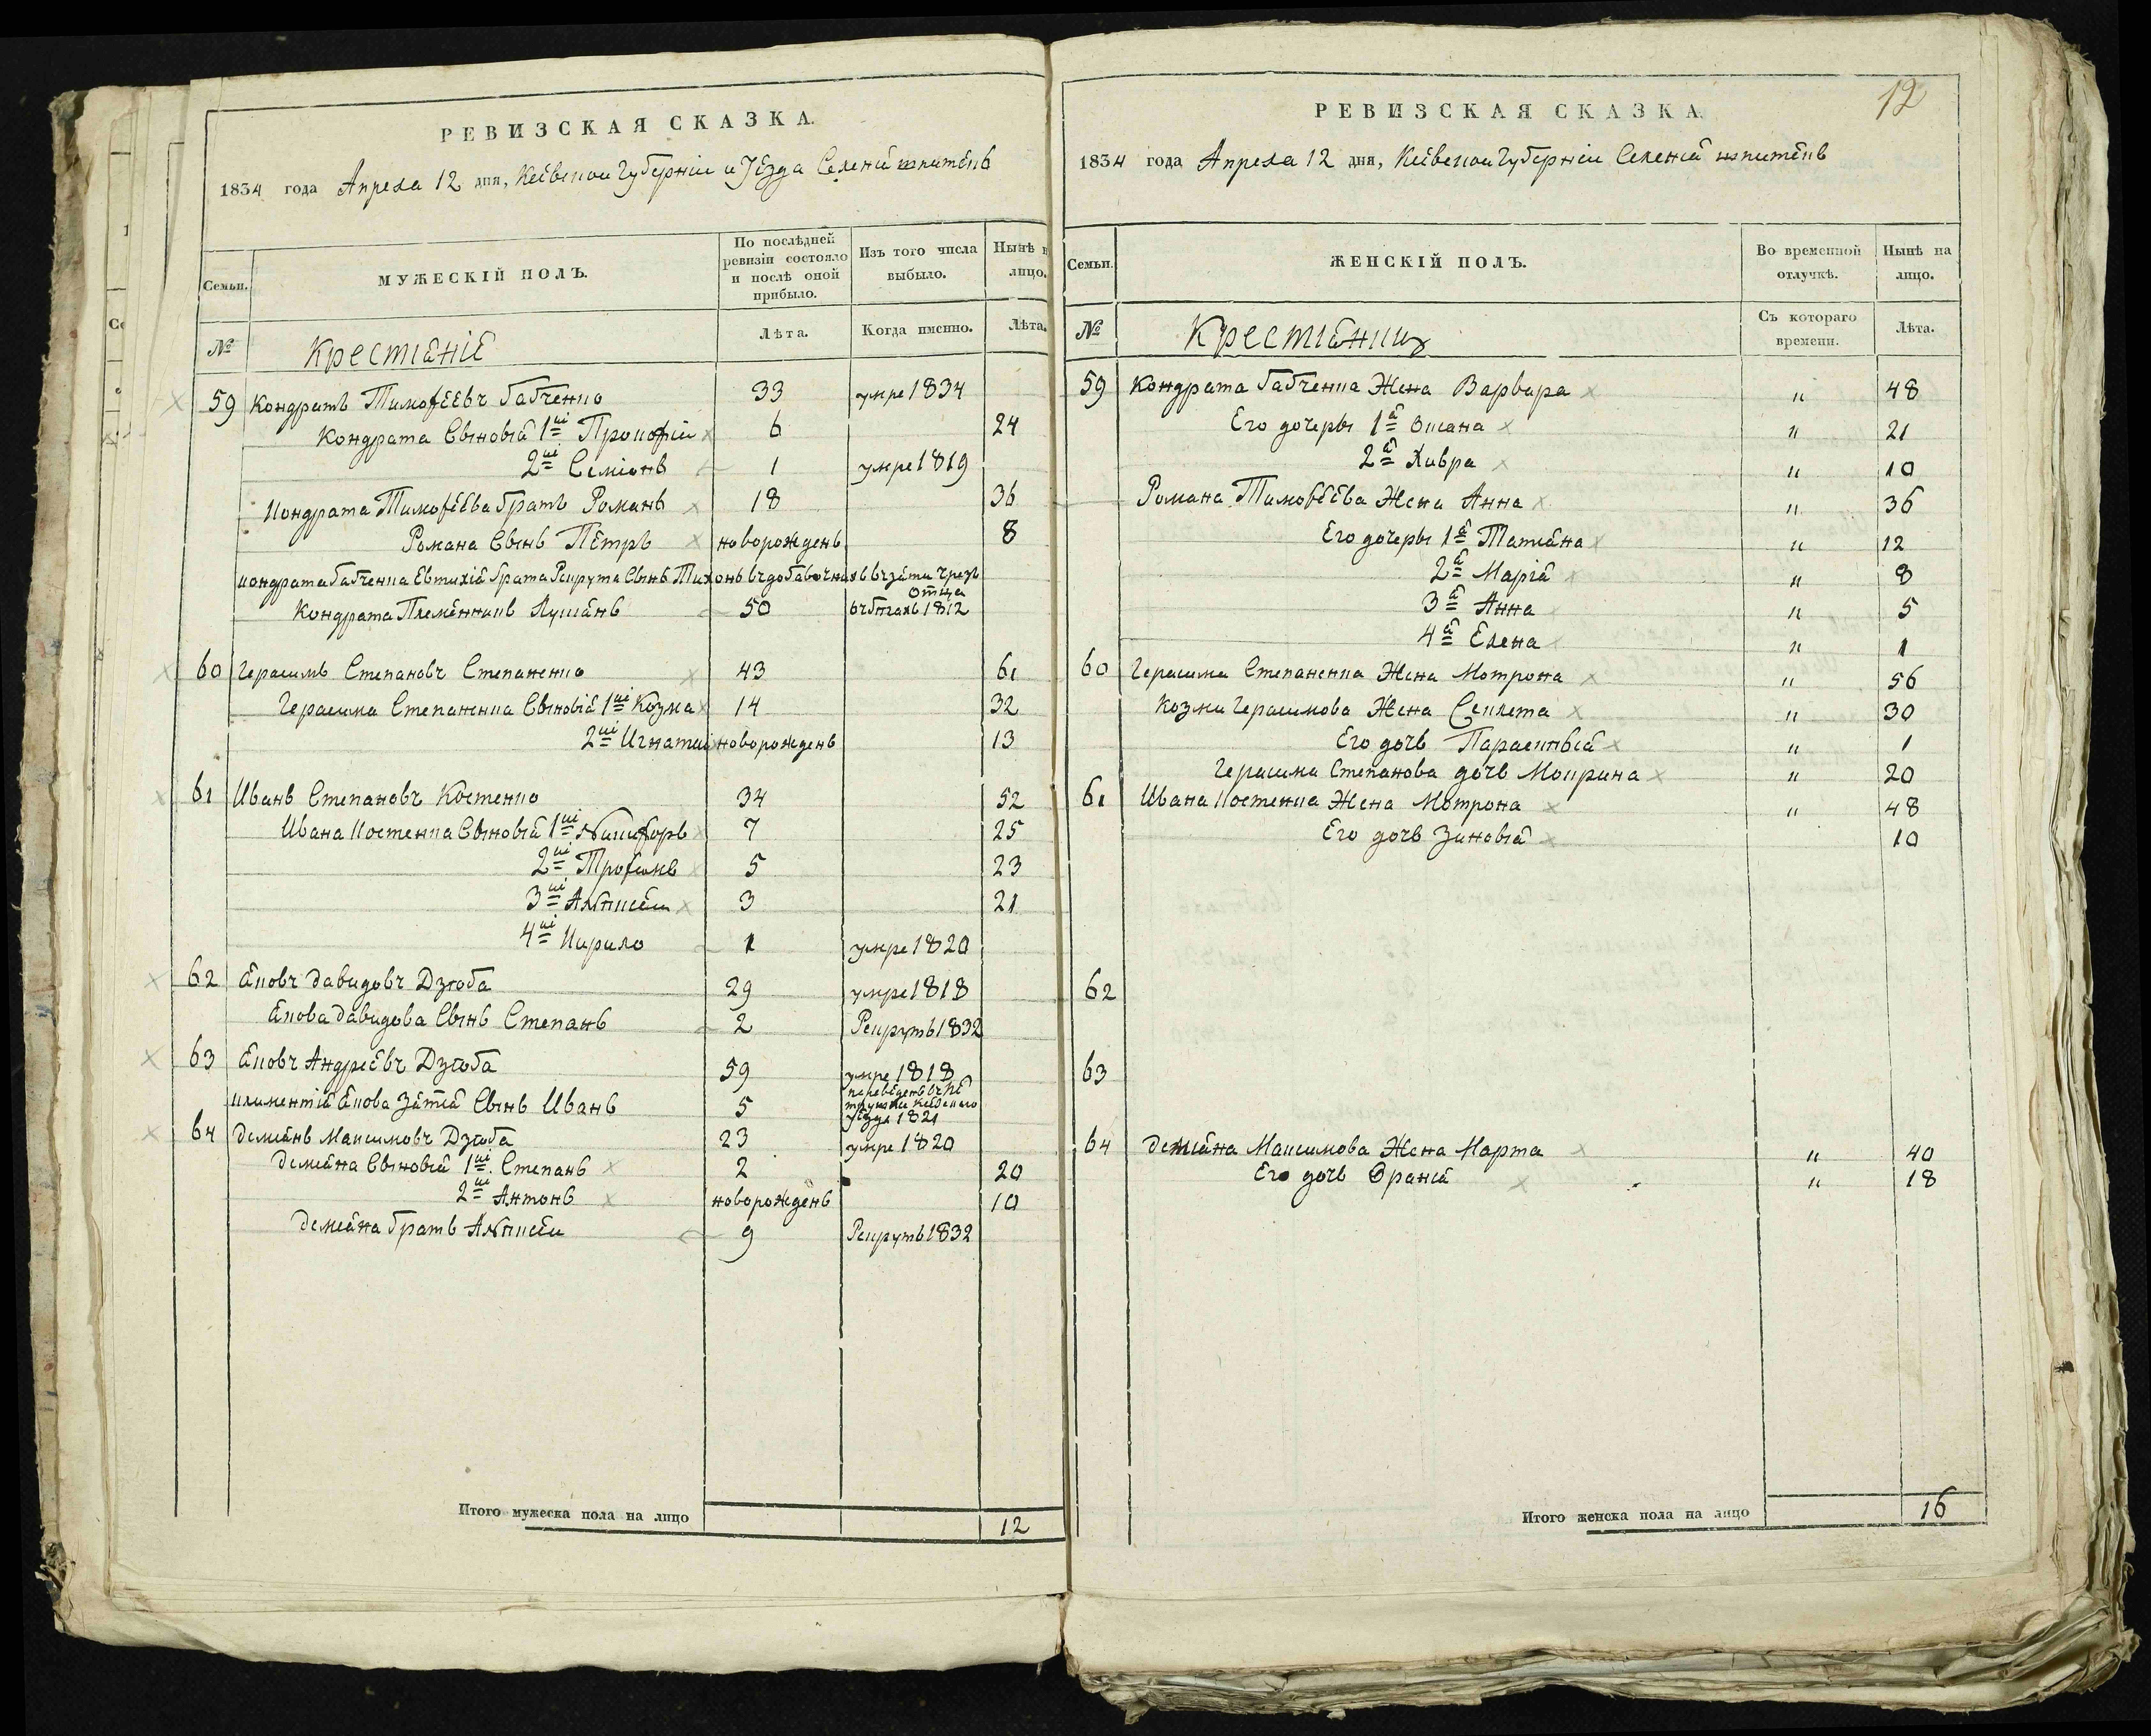 РЕВИЗСКАЯ СКАЗКА.
1834 года Апреля 12 дня, Кіевской Губерніи и Уѣзда Селенія
Семьи.
МУЖЕСКІЙ ПОЛЪ.
По послѣдней ревизіи состояло и послѣ оной прибыло.
Изъ того числа выбыло.
Нынѣ н лицо.
№
Крестіяніе
Лѣта.
Когда именно.
Лѣта.
59 Кондратъ Тимофеевъ Бабченко 33 умре 1834
Кондрата Сыновія 1ій Прокофій 6 24
2ій Семіонъ 1 умре 1819
Кондрата Тимофеева братъ Романъ 18 36
Романа Сынъ Петръ новорожденъ 8
Кондрата Бабченка Евтихія брата Рекрута Сынъ Тихонъ въ добавочныхъ взятъ чрезъ отца
Кондрата Племенникъ Лукіянъ 50 въ бегахъ 1812
60 Герасимъ Степановъ Степаненко 43 61
Герасима Степаненка Сыновія 1ій Козма 14 32
2ій Игнатій новорожденъ 13
61 Иванъ Степановъ Костенко 34 52
Ивана Костенка Сыновія 1ій Никифоръ 7 25
2ій Трофимъ 5 23
3ій Алексей 3 21
4ій Кирило 1 умре 1820
62 Яковъ Давидовъ Дзюба 29 умре 1818
Якова Давидова Сынъ Степанъ 2 Рекрутъ 1832
63 Яковъ Андреевъ Дзюба 59 умре 1818
Климентія Якова Зятя Сынъ Иванъ 5 переведенъ въ Кіевскаго Уезда 1821
64 Деміянъ Максимовъ Дзюба 23 умре 1820
Деміяна Сыновія 1ій Степанъ 2 20
2ій Антонъ новорожденъ 10
Деміяна братъ Алексей 9 Рекрутъ 1832
Итого мужеска пола на лицо 12
12
РЕВИЗСКАЯ СКАЗКА.
1834 года Апреля 12 дня, Кіевской Губерніи Селенія
Семьи.
ЖЕНСКІЙ ПОЛЪ.
Во временной отлучкѣ.
Нынѣ на лицо.
№
Крестіянки
Съ котораго времени.
Лѣта.
59 Кондрата Бабченка Жена Варвара " 48
Его дочеры 1я Оксана " 21
2я Хивра " 10
Романа Тимофеева Жена Анна " 36
Его дочеры 1я Татіяна " 12
2я Марія " 8
3я Анна " 5
4я Елена " 1
60 Герасима Степаненка Жена Мотрона " 56
Козми Герасимова Жена Феклета " 30
Его дочь Параскевія " 1
Герасима Степанова дочь Мокрина " 20
61 Ивана Костенка Жена Мотрона " 48
Его дочь Зиновія 10
62
63
64 Деміяна Максимова Жена Марта " 40
Его дочь " 18
Итого женска пола на лицо 16